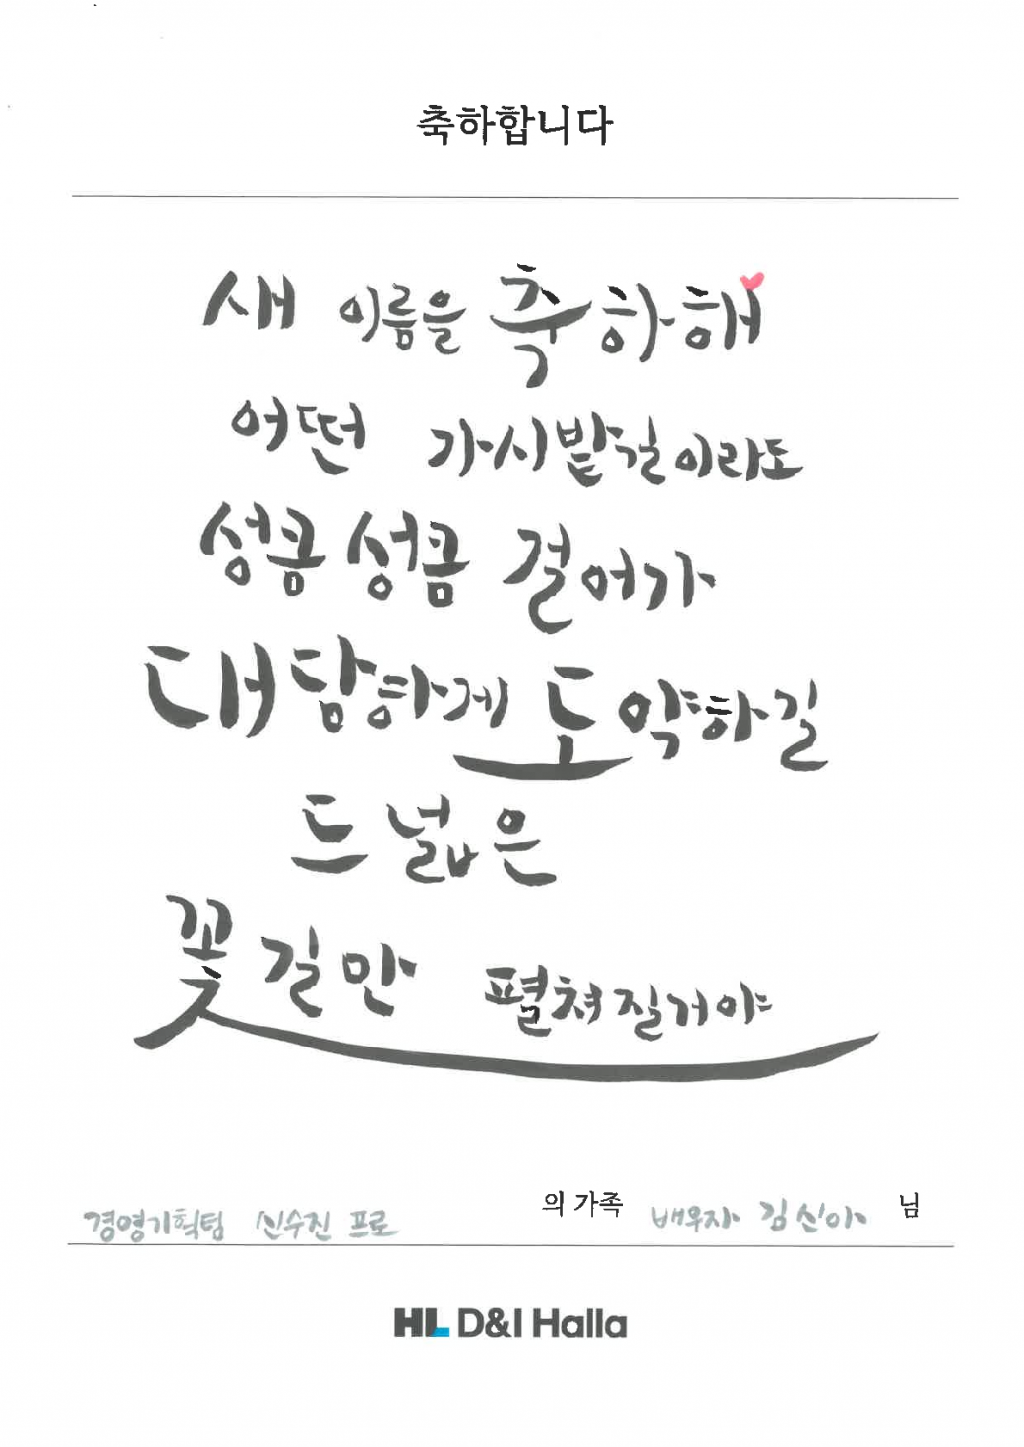 축하합니다
새 이름을 축하해
어떤 가시밭길이라도
성큼성큼 걸어가
대담하게 도약하길
드넓은
꽃길만 펼쳐질거야
경영기획팀 신수진 프로 의 가족 배우자 김신아 님
HL D&I Halla